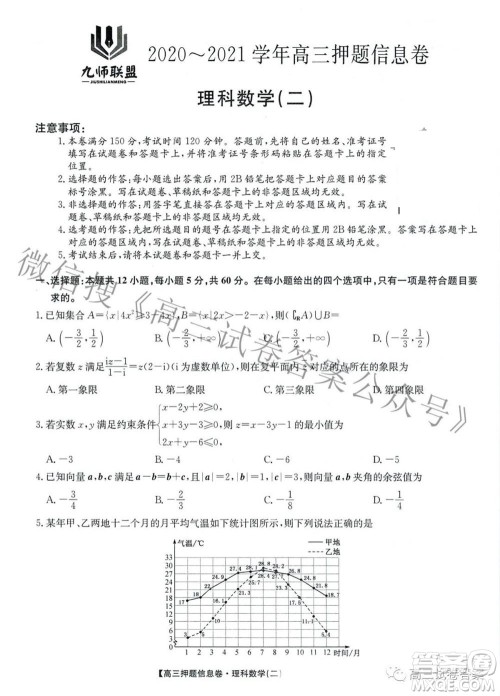 九师联盟
JIUSHILIANMENG
2020～2021学年高三押题信息卷
理科数学(二)
注意事项:
1.本卷满分150分,考试时间120分钟。答题前,先将自己的姓名、准考证号
填写在试题卷和答题卡上,并将准考证号条形码粘贴在答题卡上的指定
位置。
2.选择题的作答:每小题选出答案后,用2B铅笔把答题卡上对应题目的答案
标号涂黑。写在试题卷、草稿纸和答题卡上的非答题区域均无效。
3.非选择题的作答:用签字笔直接答在答题卡上对应的答题区域内。写在
试题卷、草稿纸和答题卡上的非答题区域均无效。
4.选考题的作答:先把所选题目的题号在答题卡上指定的位置用2B铅笔涂
黑。答案写在答题卡上对应的答题区域内,写在试题卷、草稿纸和答题卡
上的非答题区域均无效。
5.考试结束后,请将本试题卷和答题卡一并上交。
一、选择题:本题共12小题,每小题5分,共60分。在每小题给出的四个选项中,只有一项是符合题目要
求的。
1.已知集合A={x|4x²≥3+4x},B={x|2x>-2-x},则(∁RA)∪B=
A.(-3/2,1/2) B.(-2/3,2) C.(-1/2,+∞) D.(-2/3,+∞)
2.若复数z满足(iz-1)/(1-i)=z(2-i)(i为虚数单位),则在复平面内z对应的点所在的象限为
A.第一象限 B.第二象限 C.第三象限 D.第四象限
3.若实数x,y满足约束条件{x-2y+2≥0, x+3y-3≥0, x-y-2≤0, 则z=3x-y-1的最小值为
A.-3 B.-2 C.-4 D.-5
4.已知向量a,b,c满足a-b=b+c,且|a|=2,|b|=1,|c|=3,则向量a,b夹角的余弦值为
A.-3/4 B.-2/3 C.-1/8 D.-1/4
5.某年甲、乙两地十二个月的月平均气温如下统计图所示,则下列说法正确的是
气温/℃
甲地
乙地
35.0
30.0
25.0
20.0
15.0
10.0
5.0
0.0
1 2 3 4 5 6 7 8 9 10 11 12 时间/月
【高三押题信息卷·理科数学(二)
微信搜《高三试卷答案公众号》
高三试卷答案